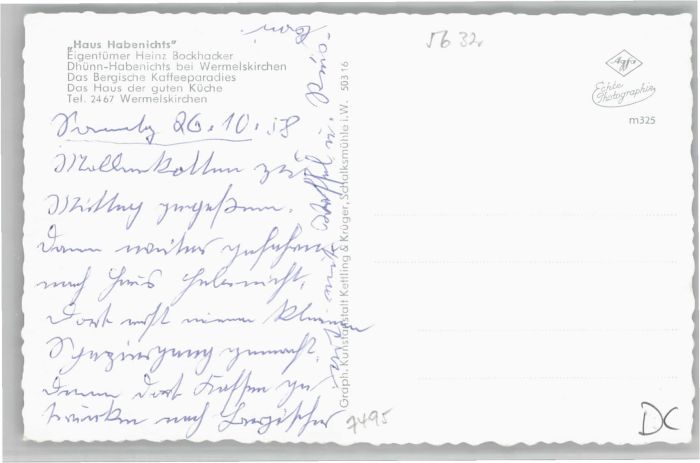 „Haus Habenichts"
Eigentümer Heinz Bockhacker
Dhünn-Habenichts bei Wermelskirchen
Das Bergische Kaffeeparadies
Das Haus der guten Küche
Tel. 2467 Wermelskirchen
Sonntag 26.10.58
Mollenkotten zu
Mittag gegessen.
Dann weiter gefahren
nach Haus Habenicht,
dort erst einen kleinen
Spaziergang gemacht.
Dann dort Kaffee ge
trunken nach Bergischer
Graph. Kunstanstalt Kettling & Krüger, Schalksmühle i. W. 50316
5632
Agfa
Echte
Photographie
m325
7495
DC